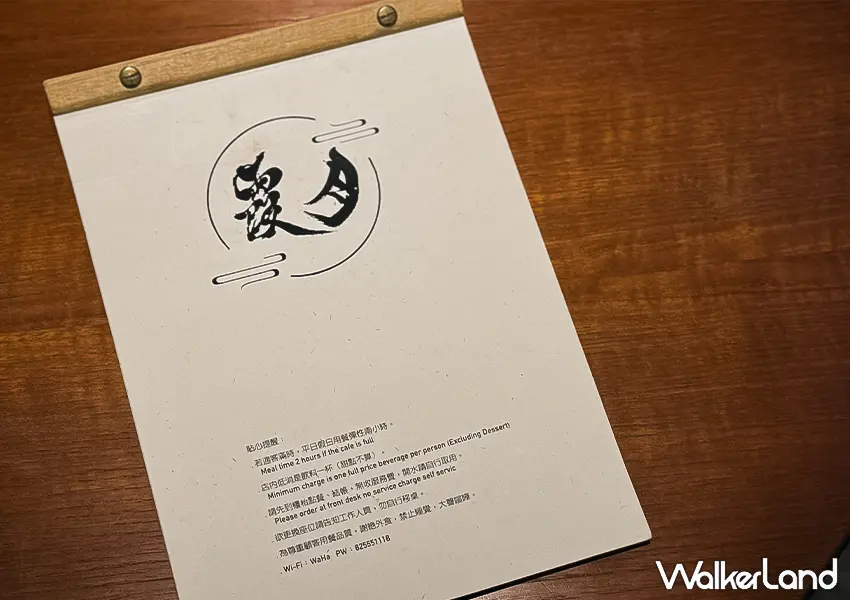 霞月
貼心提醒：
若遇客滿時，平日假日用餐彈性兩小時。
Meal time 2 hours if the cafe is full
店內低消是飲料一杯（甜點不算）。
Minimum charge is one full price beverage per person (Excluding Dessert)
請先到櫃枱點餐、結帳，無收服務費，開水請自行取用。
Please order at front desk no service charge sell servic
欲更換座位請告知工作人員，勿自行移桌。
為尊重顧客用餐品質，謝絕外食，禁止睡覺，大聲喧嘩。
Wi-Fi：WaHa PW：82555111B
WalkerLand